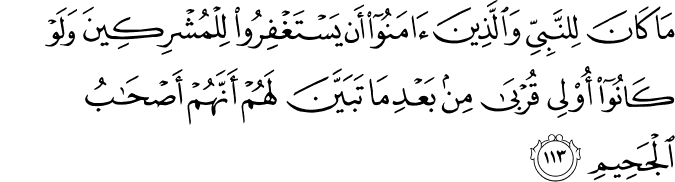 مَا كَانَ لِلنَّبِيِّ وَٱلَّذِينَ ءَامَنُوٓا۟ أَن يَسْتَغْفِرُوا۟ لِلْمُشْرِكِينَ وَلَوْ
كَانُوٓا۟ أُو۟لِى قُرْبَىٰ مِنۢ بَعْدِ مَا تَبَيَّنَ لَهُمْ أَنَّهُمْ أَصْحَـٰبُ
ٱلْجَحِيمِ ١١٣